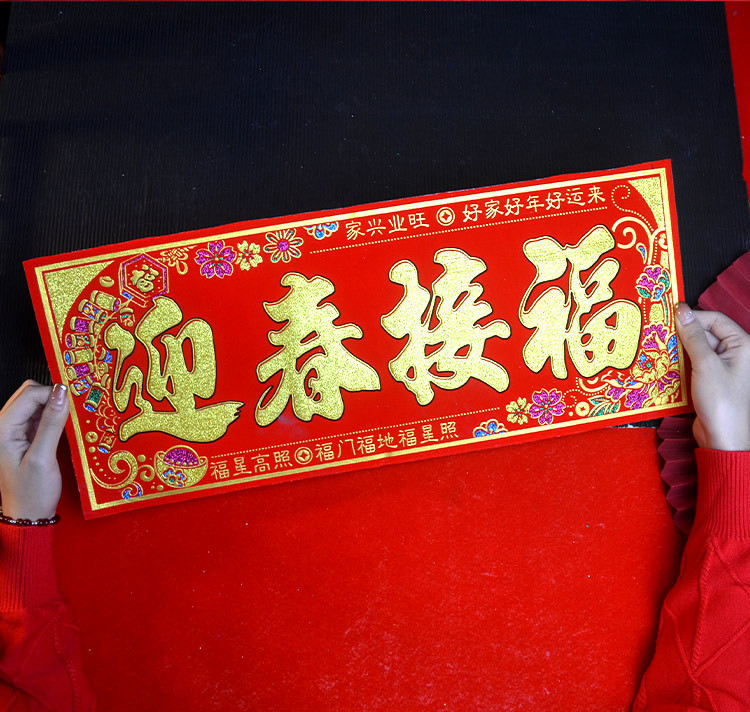 家兴业旺 好家好年好运来
福
迎春接福
福星高照 福门福地福星照